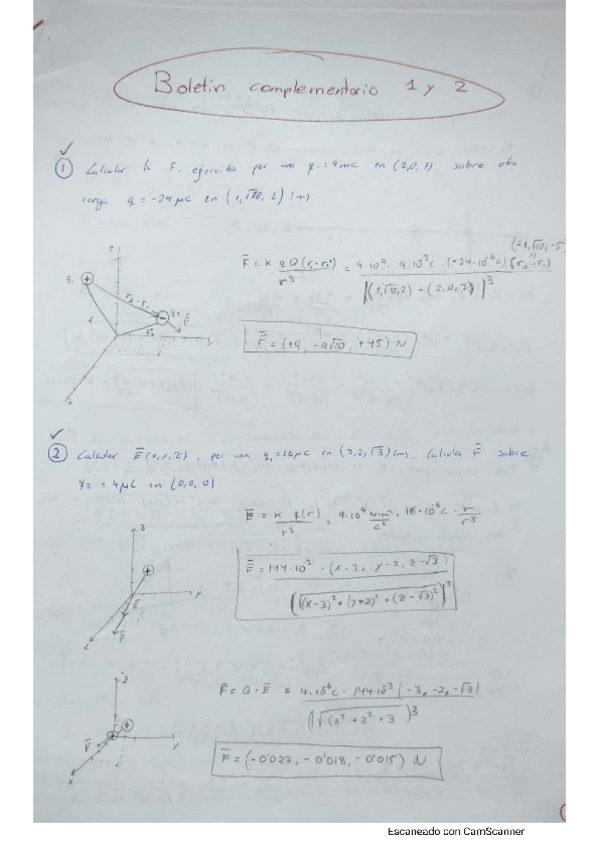 Boletín complementario 1 y 2
① Calcular la F. ejercida por una q₁=4mC en (2,0,7) sobre otra
carga q = -24 μC en (1,√10,2) (m)
F̄ = K q Q (r₂-r₁) / r³ = 9·10⁹ · 4·10⁻³c · (-24·10⁻⁶c) (r₂-r₁) / |(1,√10,2) - (2,0,7)|³
(-1,√10,-5)
F̄ = (+9, -9√10, +45) N
② Calcular Ē(x,y,z), por una q₁=16μC en (3,2,√3)(m). Calcula F̄ sobre
q₂ = 4μC en (0,0,0)
Ē = K q(r) / r³ = 9·10⁹ N·m²/c² · 16·10⁻⁶c · r / r³
Ē = 144·10³ · (x-3, y-2, z-√3) / (√(x-3)²+(y-2)²+(z-√3)²)³
F̄ = Q · Ē = 4·10⁻⁶c · 144·10³ (-3,-2,-√3) / (√(3²+2²+3))³
F̄ = (-0'027, -0'018, -0'015) N
Escaneado con CamScanner